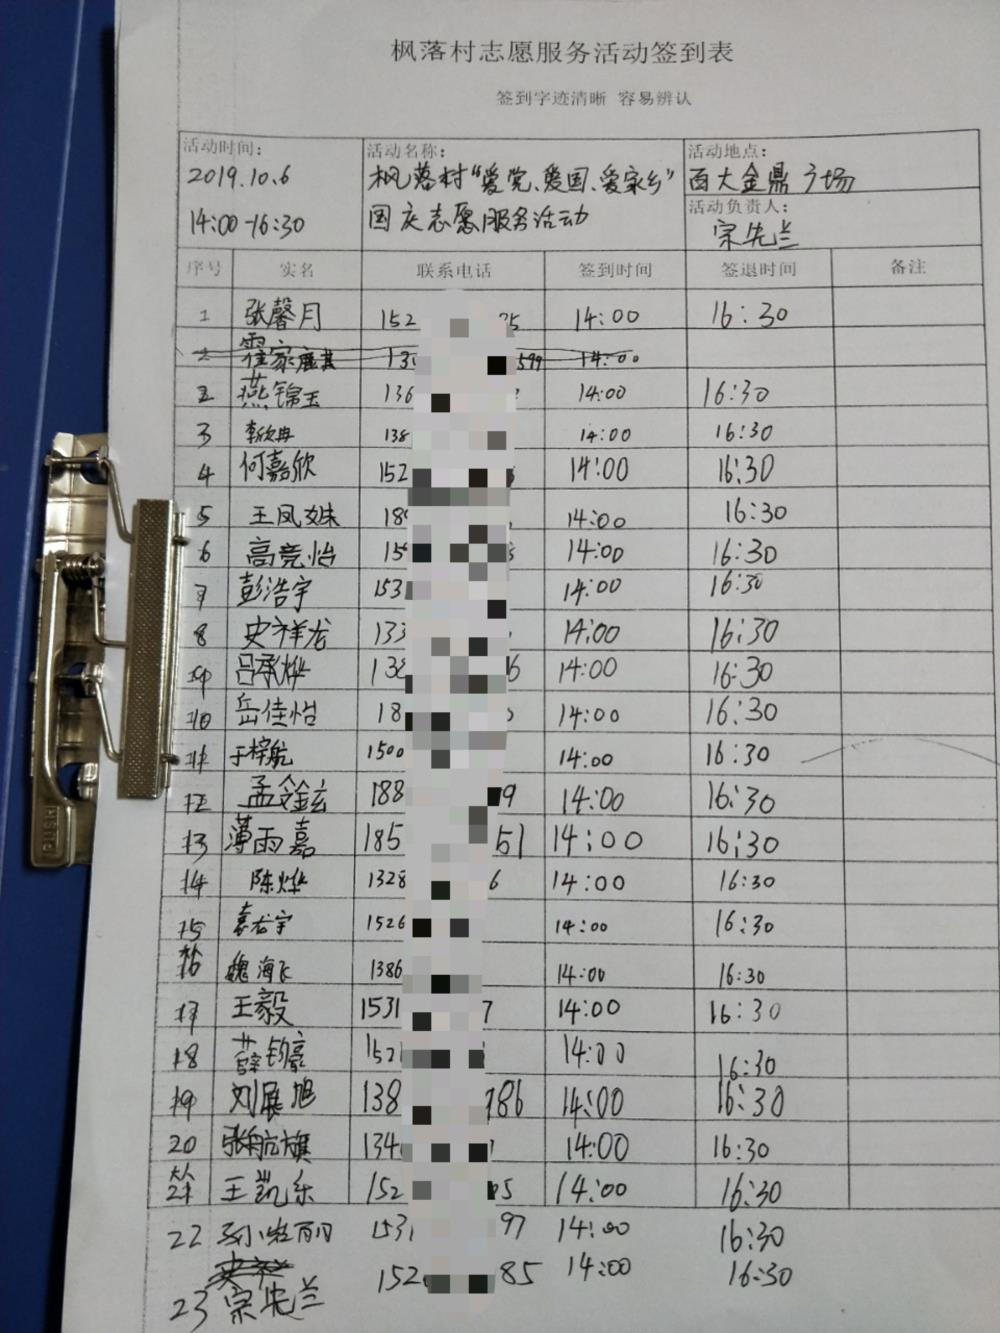 枫落村志愿服务活动签到表
签到字迹清晰 容易辨认
活动时间: 活动名称: 活动地点:
2019.10.6 枫落村“爱党、爱国、爱家乡” 百大金鼎广场
活动负责人:
14:00-16:30 国庆志愿服务活动 宗先兰
序号 实名 联系电话 签到时间 签退时间 备注
1 张馨月 152 14:00 16:30
2 霍家 599 14:00
2 燕锦玉 136 14:00 16:30
3 李欣冉 138 14:00 16:30
4 何嘉欣 152 14:00 16:30
5 王凤姝 14:00 16:30
6 高竞怡 14:00 16:30
7 彭浩宇 153 14:00 16:30
8 史祥龙 133 14:00 16:30
9 吕承烨 138 6 14:00 16:30
10 岳佳怡 18 14:00 16:30
11 于梓航 1500 14:00 16:30
12 孟 188 9 14:00 16:30
13 薄雨嘉 185 51 14:00 16:30
14 陈烨 1328 6 14:00 16:30
15 袁龙宇 1526 14:00 16:30
16 魏海飞 1386 14:00 16:30
17 王毅 1531 7 14:00 16:30
18 薛钧豪 152 14:00 16:30
19 刘展旭 138 986 14:00 16:30
20 张航旗 134 14:00 16:30
21 王凯乐 152 05 14:00 16:30
22 丽 153 97 14:00 16:30
23 宗先兰 152 85 14:00 16:30
PUSH